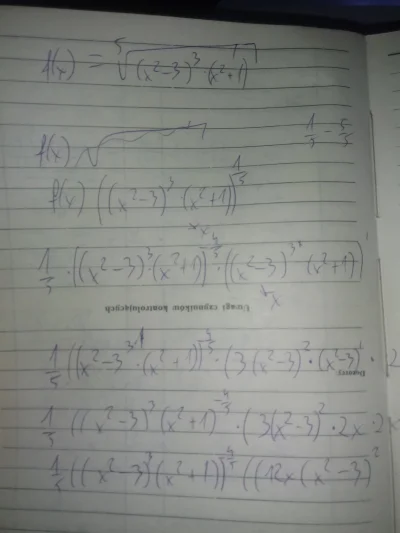 f(x) = ⁵√((x²-3)³ · (x²+1))
f(x) √
1/5 - 5/5
f(x) ((x²-3)³ · (x²+1))^(1/5)
1/5 · ((x²-3)³ · (x²+1))^(-4/5) · ((x²-3)³ · (x²+1))'
Uwagi czynników kontrolujących
1/5 ((x²-3)³ · (x²+1))^(-4/5) · (3(x²-3)² · (x²-3)' · 2
1/5 ((x²-3)³ (x²+1))^(-4/5) · (3(x²-3)² · 2x · 2x
1/5 ((x²-3)³ (x²+1))^(-4/5) ((12x(x²-3)²